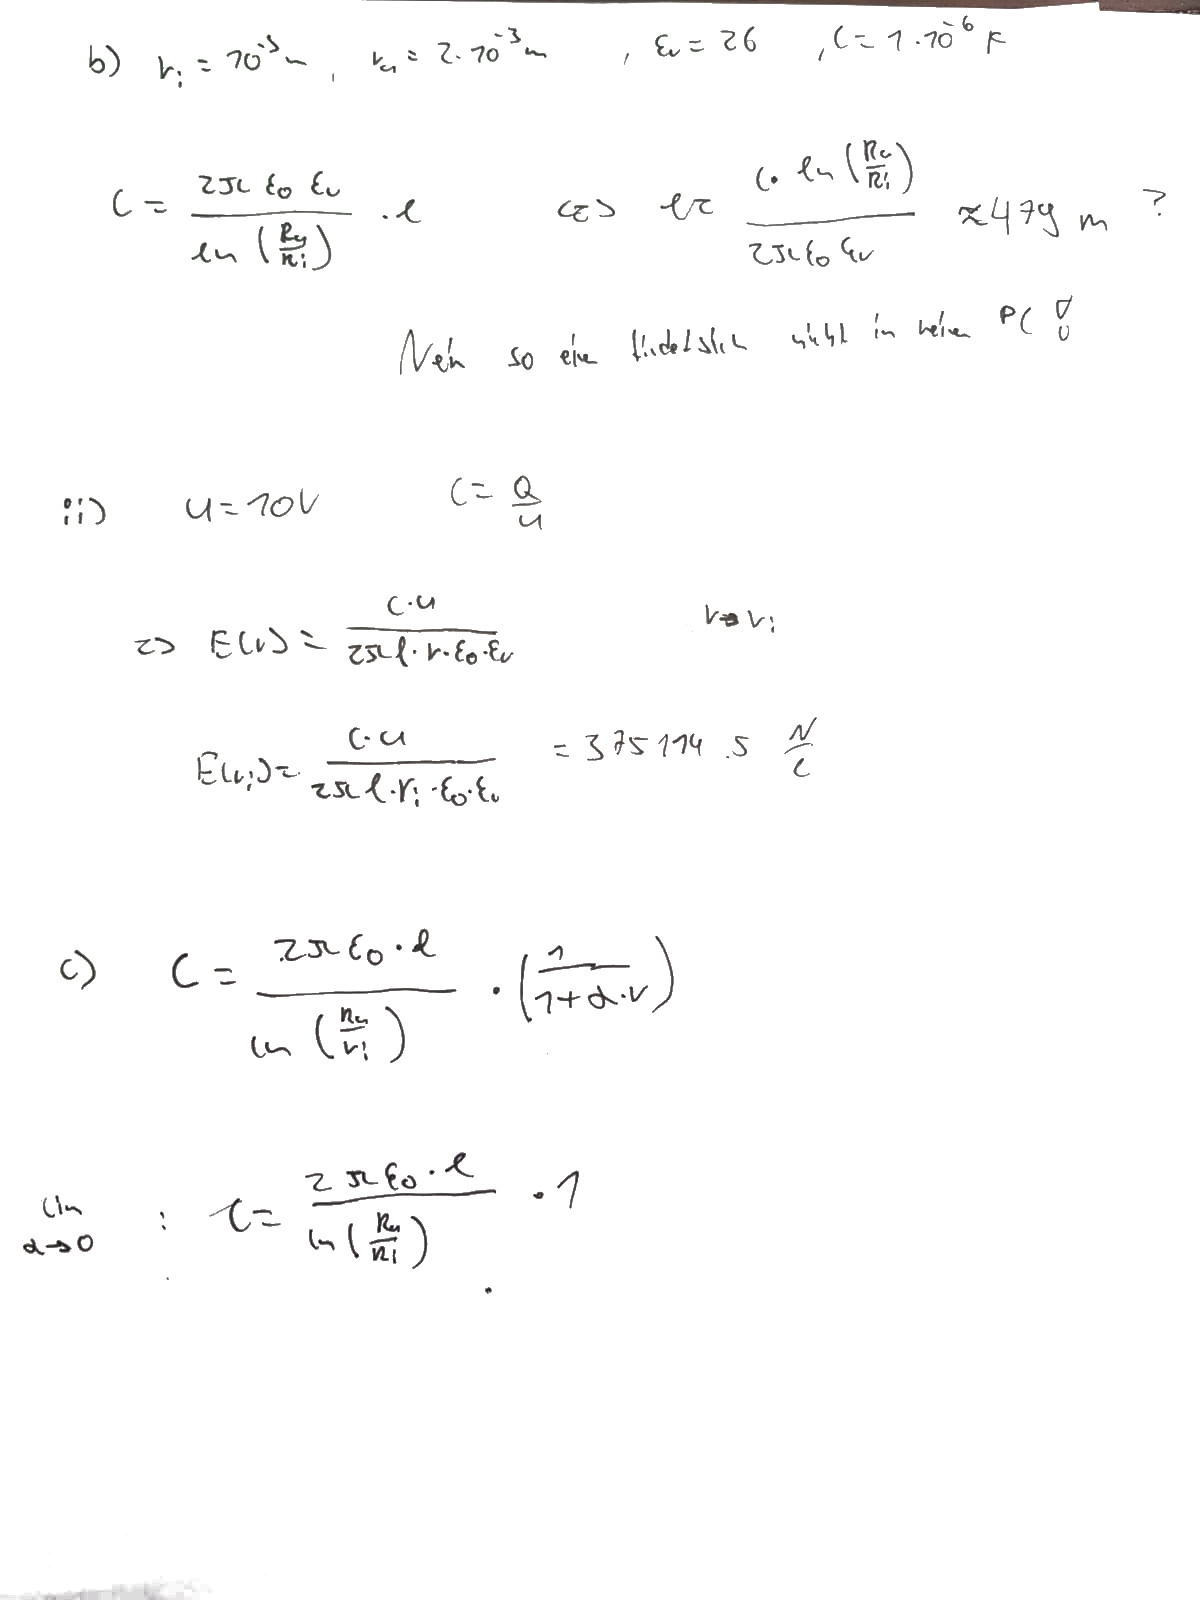 b) r_i = 10^-3 m , r_a = 2·10^-3 m , ε_r = 26 , C = 1·10^-6 F
C = 2π ε_0 ε_r / ln (R_a/R_i) · l <=> l = C· ln (R_a/R_i) / 2π ε_0 ε_r ≈ 479 m ?
Nein so ein findet sich nicht in meinem PC !
ii) U = 10V C = Q/U
=> E(r) = C·U / 2π l·r·ε_0·ε_r r → r_i
E(r_i) = C·U / 2π l·r_i·ε_0·ε_r = 375114.5 N/C
c) C = 2π ε_0·l / ln (R_a/r_i) · (1 / 1+α·r)
lim α→0 : C = 2π ε_0·l / ln (R_a/R_i) · 1